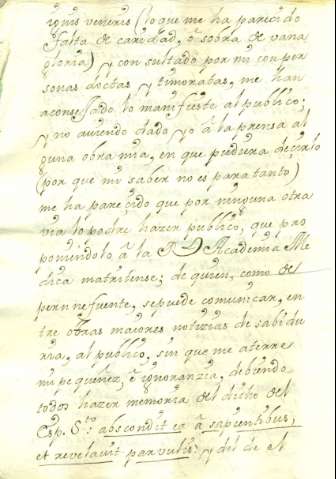 ignis veneris (lo que me ha parecido
falta de caridad, ô sobra de vana
gloria) y consultado por mi con per
sonas doctas y timoratas, me han
aconsejado lo manifieste al publico;
y no aviendo dado yo â la prensa al
guna obra mia, en que pudiera decirlo
(por que mi saber no es para tanto)
me ha parecido que por ninguna otra
via lo podre hazer publico, que pro
poniendolo â la R Academia Me
dica matritense; de quien, como de
perinne fuente, se puede comunicar, en
tre otras maiores notizias de sabidu
ria, al publico, sin que me aterre
mi pequeñez, ê ignoranzia, debiendo
todos hazer memoria del dicho del
Esp. Sto. abscondit ea â sapientibus,
et revelavit parvulis: y del de el